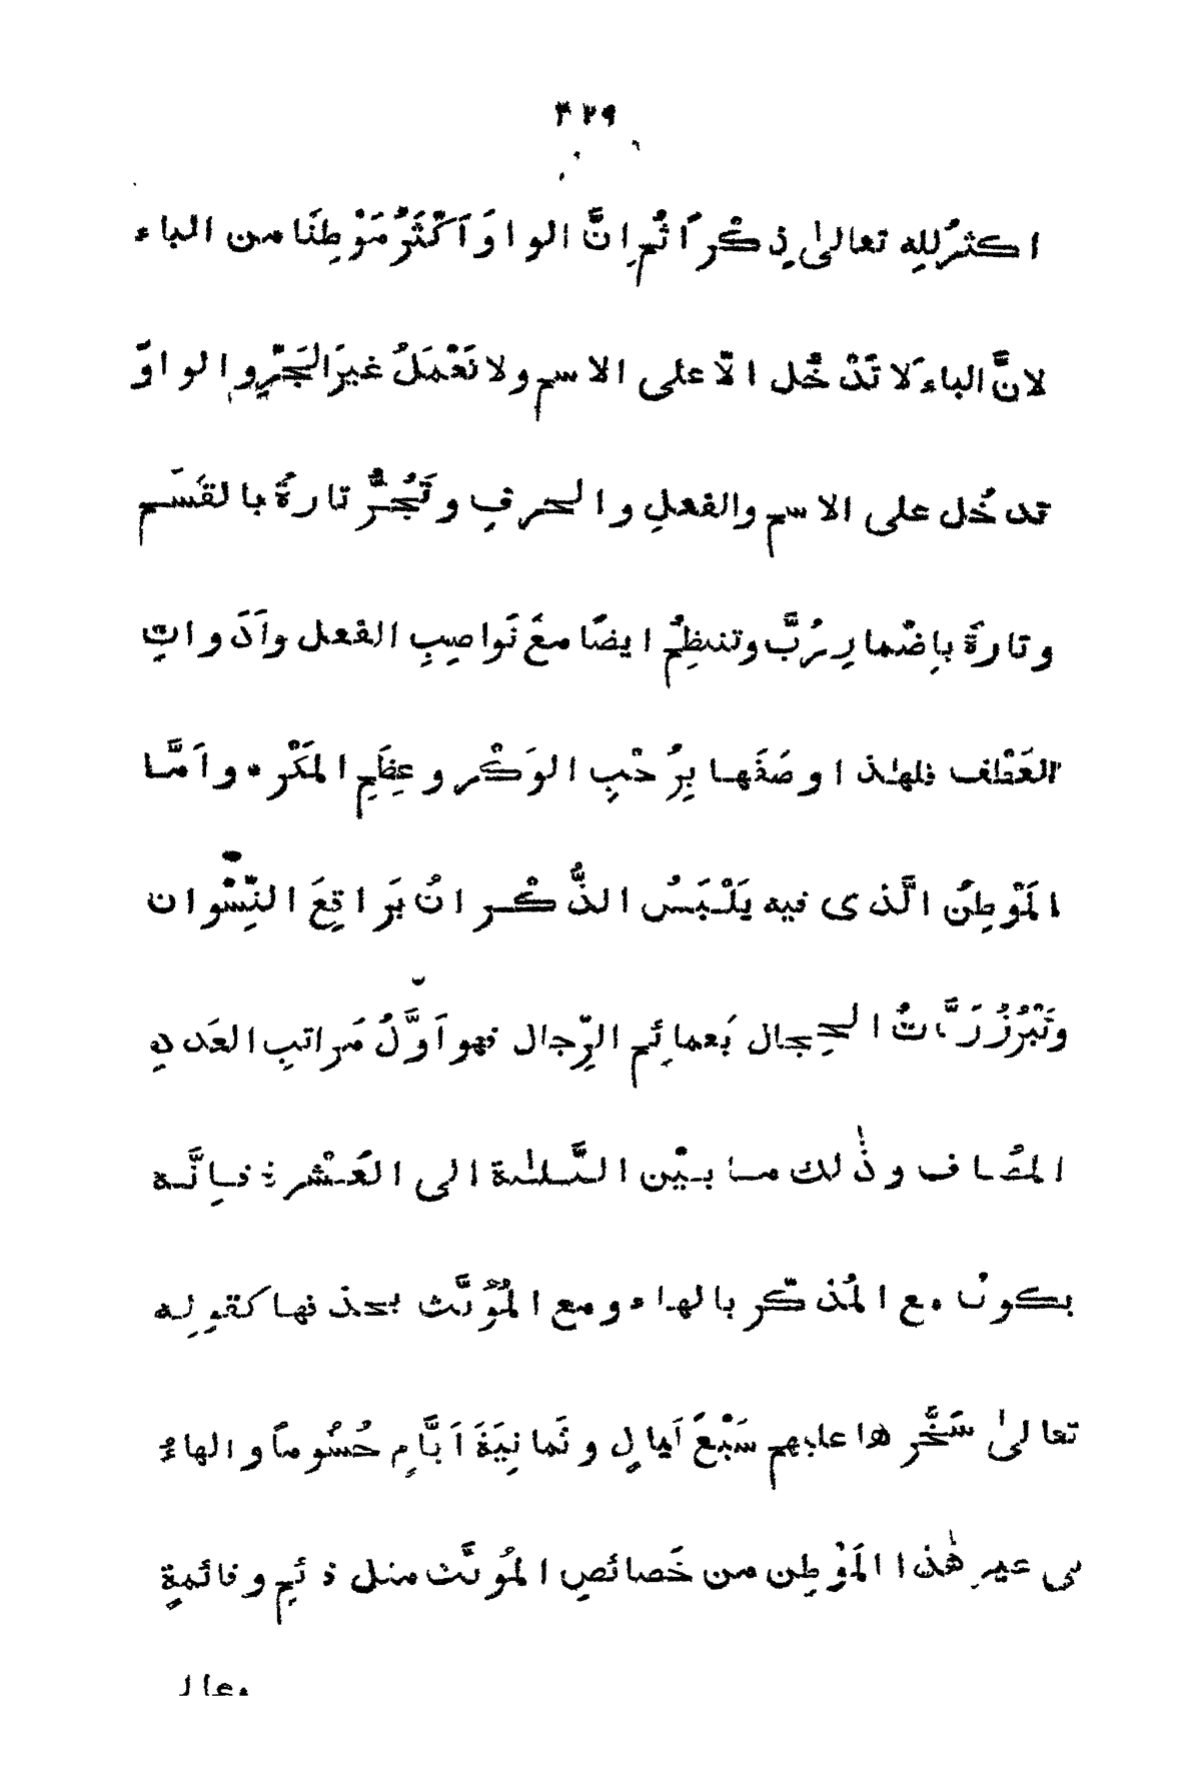 ٣٢٩
اكثرُ لِلهِ تعالىٰ ذِكْراً ثُم اِنَّ الواوَ اَكْثَرُ مَوْطِنًا من الباء
لانَّ الباءَ لا تَدْخُل الّا على الاسم ولا تَعْمَلُ غيرَ الجَرِّ والواوَ
تدخُل على الاسم والفعلِ والحرفِ وتَجُرُّ تارةً بالقَسَم
وتارةً بِاِضْمارِ رُبَّ وتنتظِمُ ايضًا معَ نَواصِبِ الفعل واَدَواتِ
العَطْف فلهٰذا وصَفَها بِرُحْبِ الوَكْر وعِظَمِ المَكْر ٭ واَمَّا
المَوْطِنُ الَّذى فيه يَلْبَسُ الذُّكْرانُ بَراقِعَ النِّسْوان
وتَبْرُزُ رَبَّاتُ الحِجال بَعمائِم الرِّجال فهو اَوَّلُ مَراتبِ العَددِ
المُضاف وذٰلك ما بيْن الثَّلٰثة الى العَشْرة فاِنَّه
يكونُ مع المُذكّر بالهاء ومع المُؤنَّث بحذفها كقولِه
تعالىٰ سَخَّرها عليهم سَبْعَ لَيالٍ وثَمانِيَةَ اَيَّامٍ حُسُوماً والهاءُ
فى غير هٰذا المَوْطِن من خَصائصِ المُؤنَّث مثل قائِم وقائمةٍ
وعالم